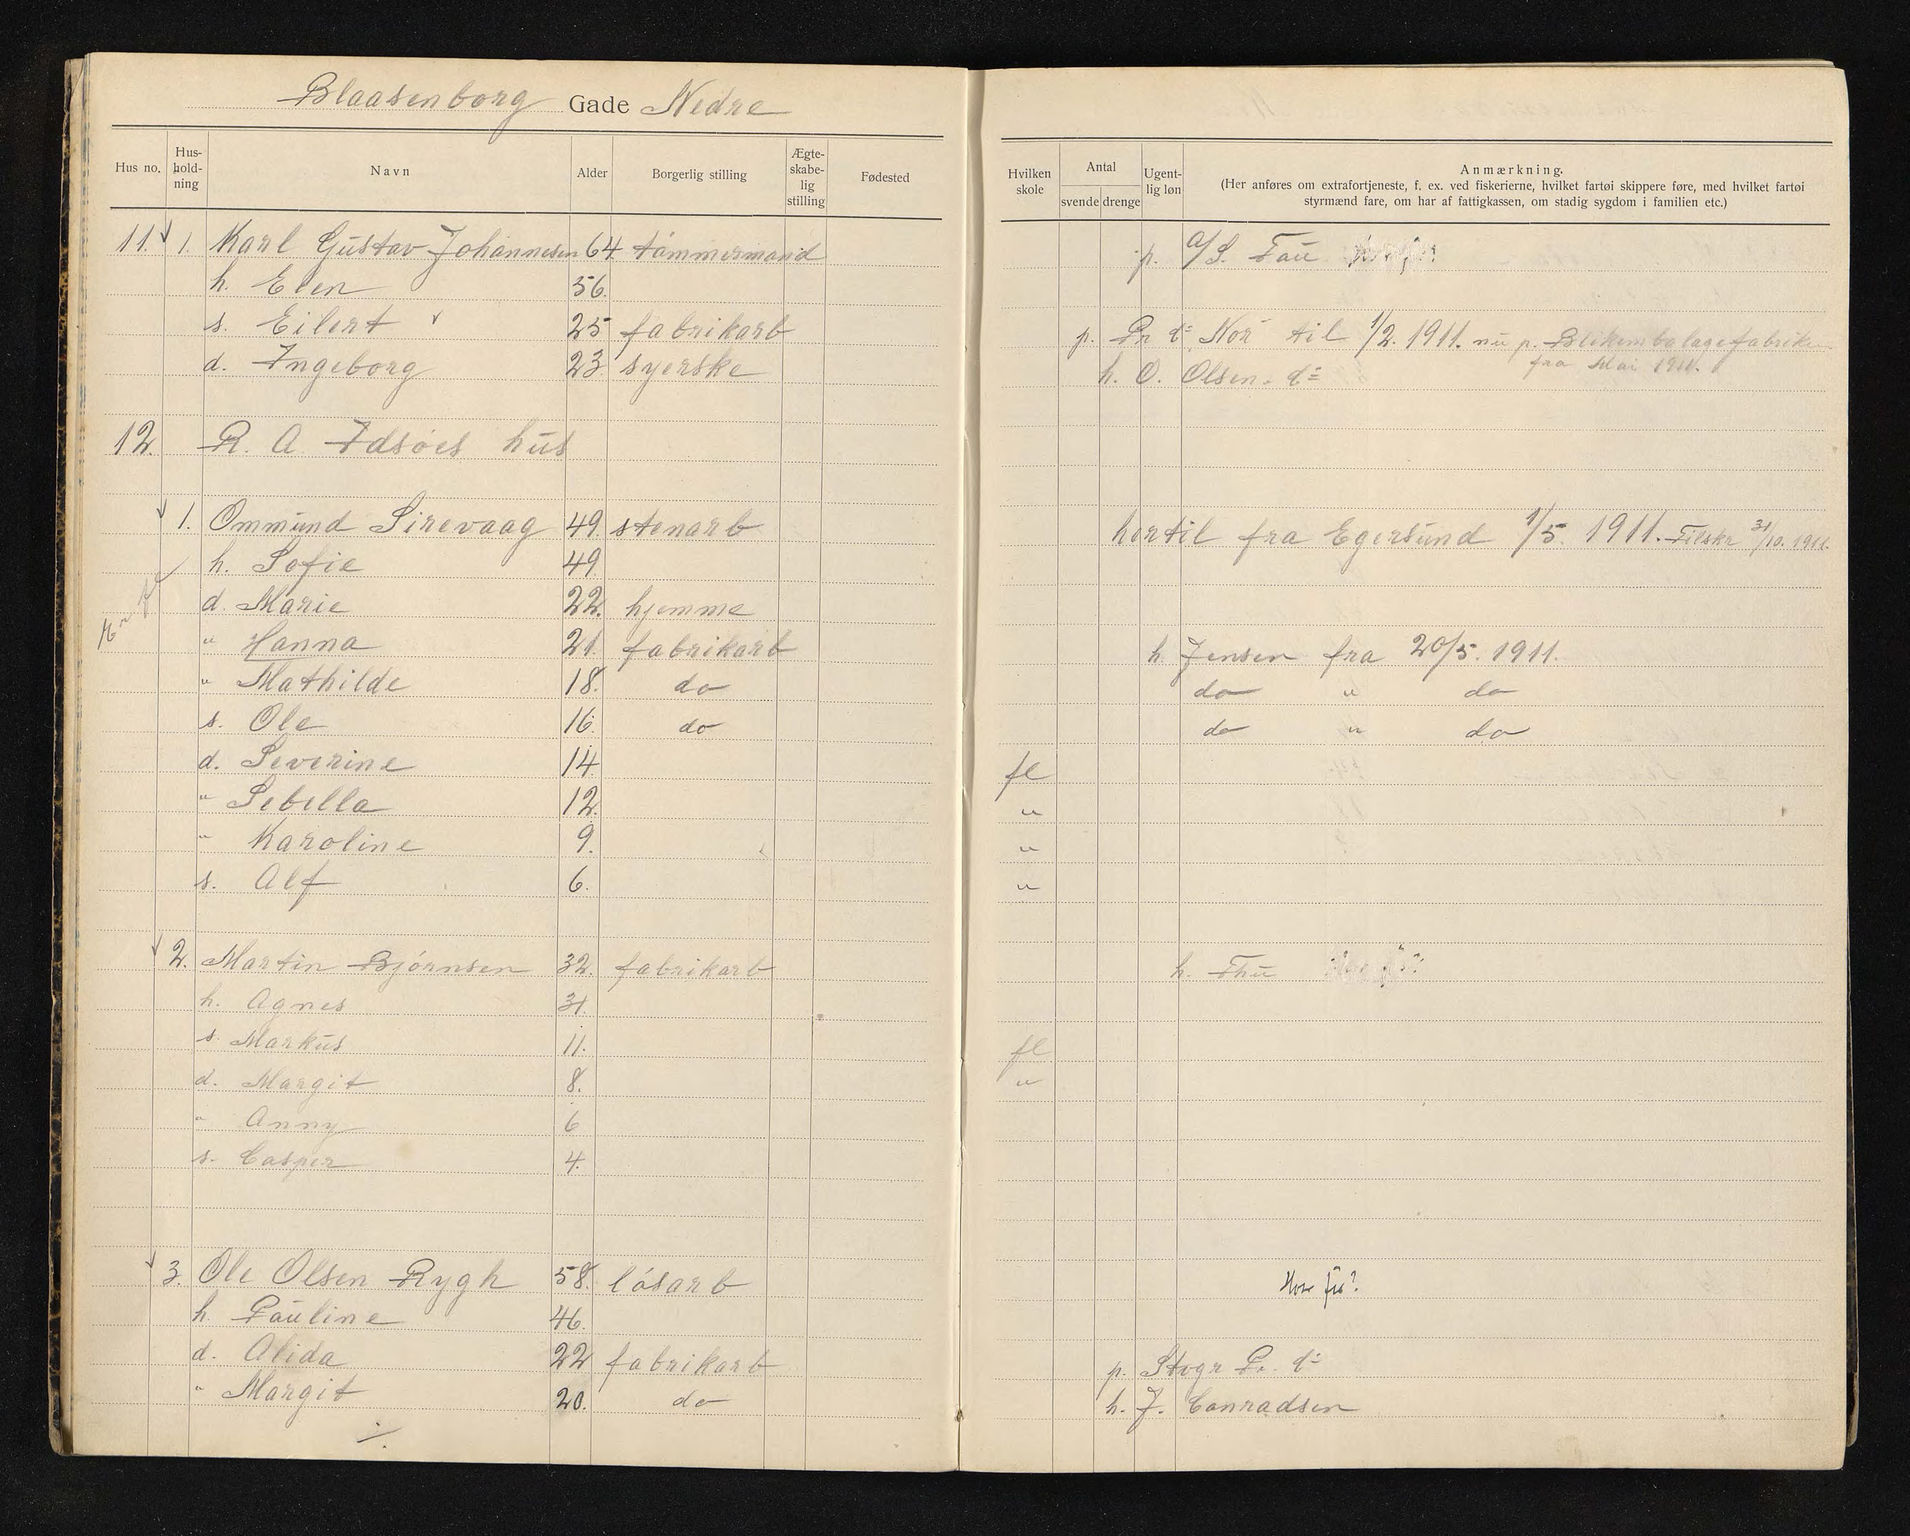 Blaasenborg Gade Nedre
Hus no. Hus-hold-ning Navn Alder Borgerlig stilling Ægte-skabe-lig stilling Fødested Hvilken skole Antal svende drenge Ugent-lig løn Anmærkning.
(Her anføres om extrafortjeneste, f. ex. ved fiskerierne, hvilket fartøi skippere føre, med hvilket fartøi
styrmænd fare, om har af fattigkassen, om stadig sygdom i familien etc.)
11. 1. Karl Gustav Johannesen 64 tømmermand p. a/S. Tau
h. Elen 56.
s. Eilert 25 fabrikarb p. Pr d= Nor til 1/2. 1911. nu p. Blikembalagefabriken
fra Mai 1911.
d. Ingeborg 23 syerske h. O. Olsen. d=
12. R. A. Idsøes hus
1. Ommund Sirevaag 49. stenarb hertil fra Egersund 1/5. 1911. Tilskr 31/10. 1911.
h. Sofie 49
d. Marie 22. hjemme
" Hanna 21. fabrikarb h. Jensen fra 20/5. 1911.
" Mathilde 18. do do " do
s. Ole 16. do do " do
d. Severine 14 fl
" Sebella 12. "
" Karoline 9. "
s. Alf 6. "
2. Martin Bjørnsen 32. fabrikarb h. Thu
h. Agnes 31.
s. Markus 11. fl
d. Margit 8. "
" Anny 6
s. Casper 4.
3. Ole Olsen Rygh 58. løsarb Hos fis?
h. Pauline 46.
d. Alida 22 fabrikarb p. Stvgr Pr. d=
" Margit 20. do h. J. Conradsen